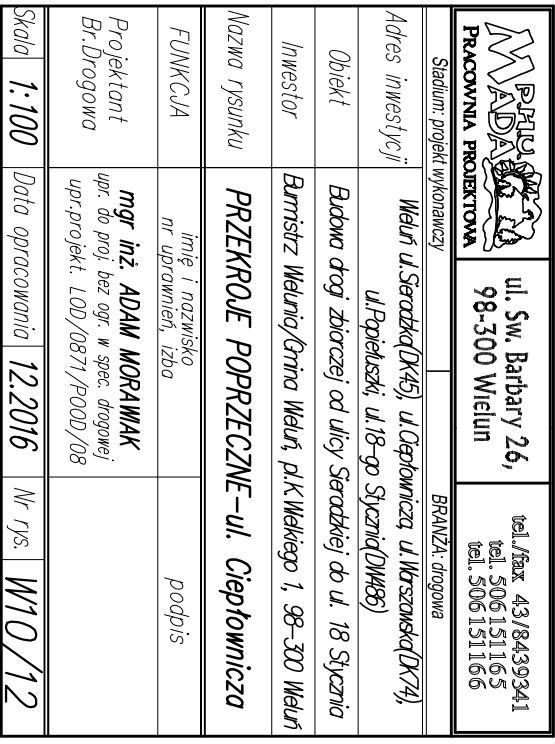 P.H.U.
MADA
PRACOWNIA PROJEKTOWA
ul. Sw. Barbary 26,
98-300 Wielun
tel./fax 43/8439341
tel. 506151165
tel. 506151166
Stadium: projekt wykonawczy
BRANŻA: drogowa
Adres inwestycji
Wieluń ul.Sieradzka(DK45), ul.Ciepłownicza, ul.Warszawska(DK74),
ul.Popiełuszki, ul.18-go Stycznia(DW486)
Obiekt
Budowa drogi zbiorczej od ulicy Sieradzkiej do ul. 18 Stycznia
Inwestor
Burmistrz Wielunia/Gmina Wieluń, pl.K.Wielkiego 1, 98-300 Wieluń
Nazwa rysunku
PRZEKROJE POPRZECZNE-ul. Ciepłownicza
FUNKCJA
imię i nazwisko
nr uprawnień, izba
podpis
Projektant
Br.Drogowa
mgr inż. ADAM MORAWIAK
upr. do proj. bez ogr. w spec. drogowej
upr.projekt. LOD/0871/POOD/08
Skala
1:100
Data opracowania
12.2016
Nr rys.
W10/12